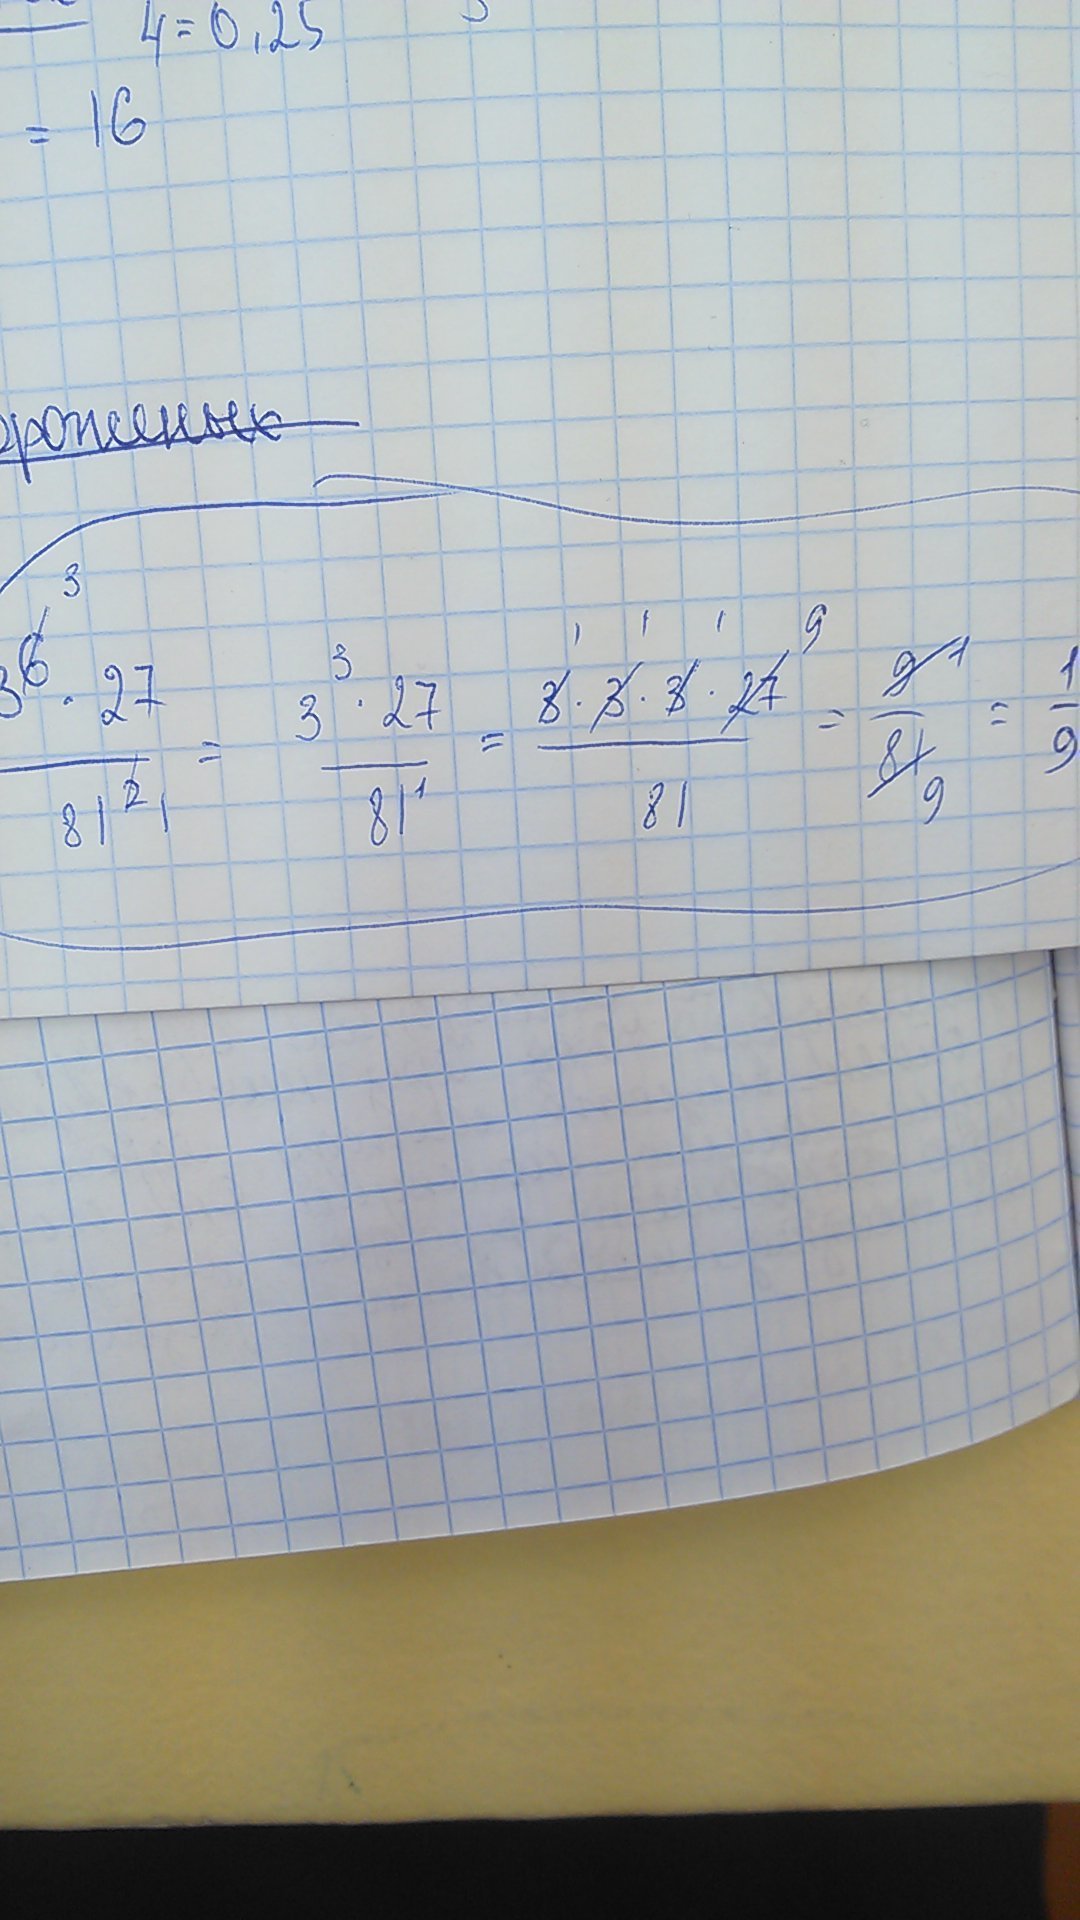 4 = 0,25
= 16
3
3⁶ · 27 / 81² 1 = 3³ · 27 / 81¹ = 3 · 3 · 3 · 27 / 81 = 9 / 81 = 1 / 9
1 1 1 9 1 9